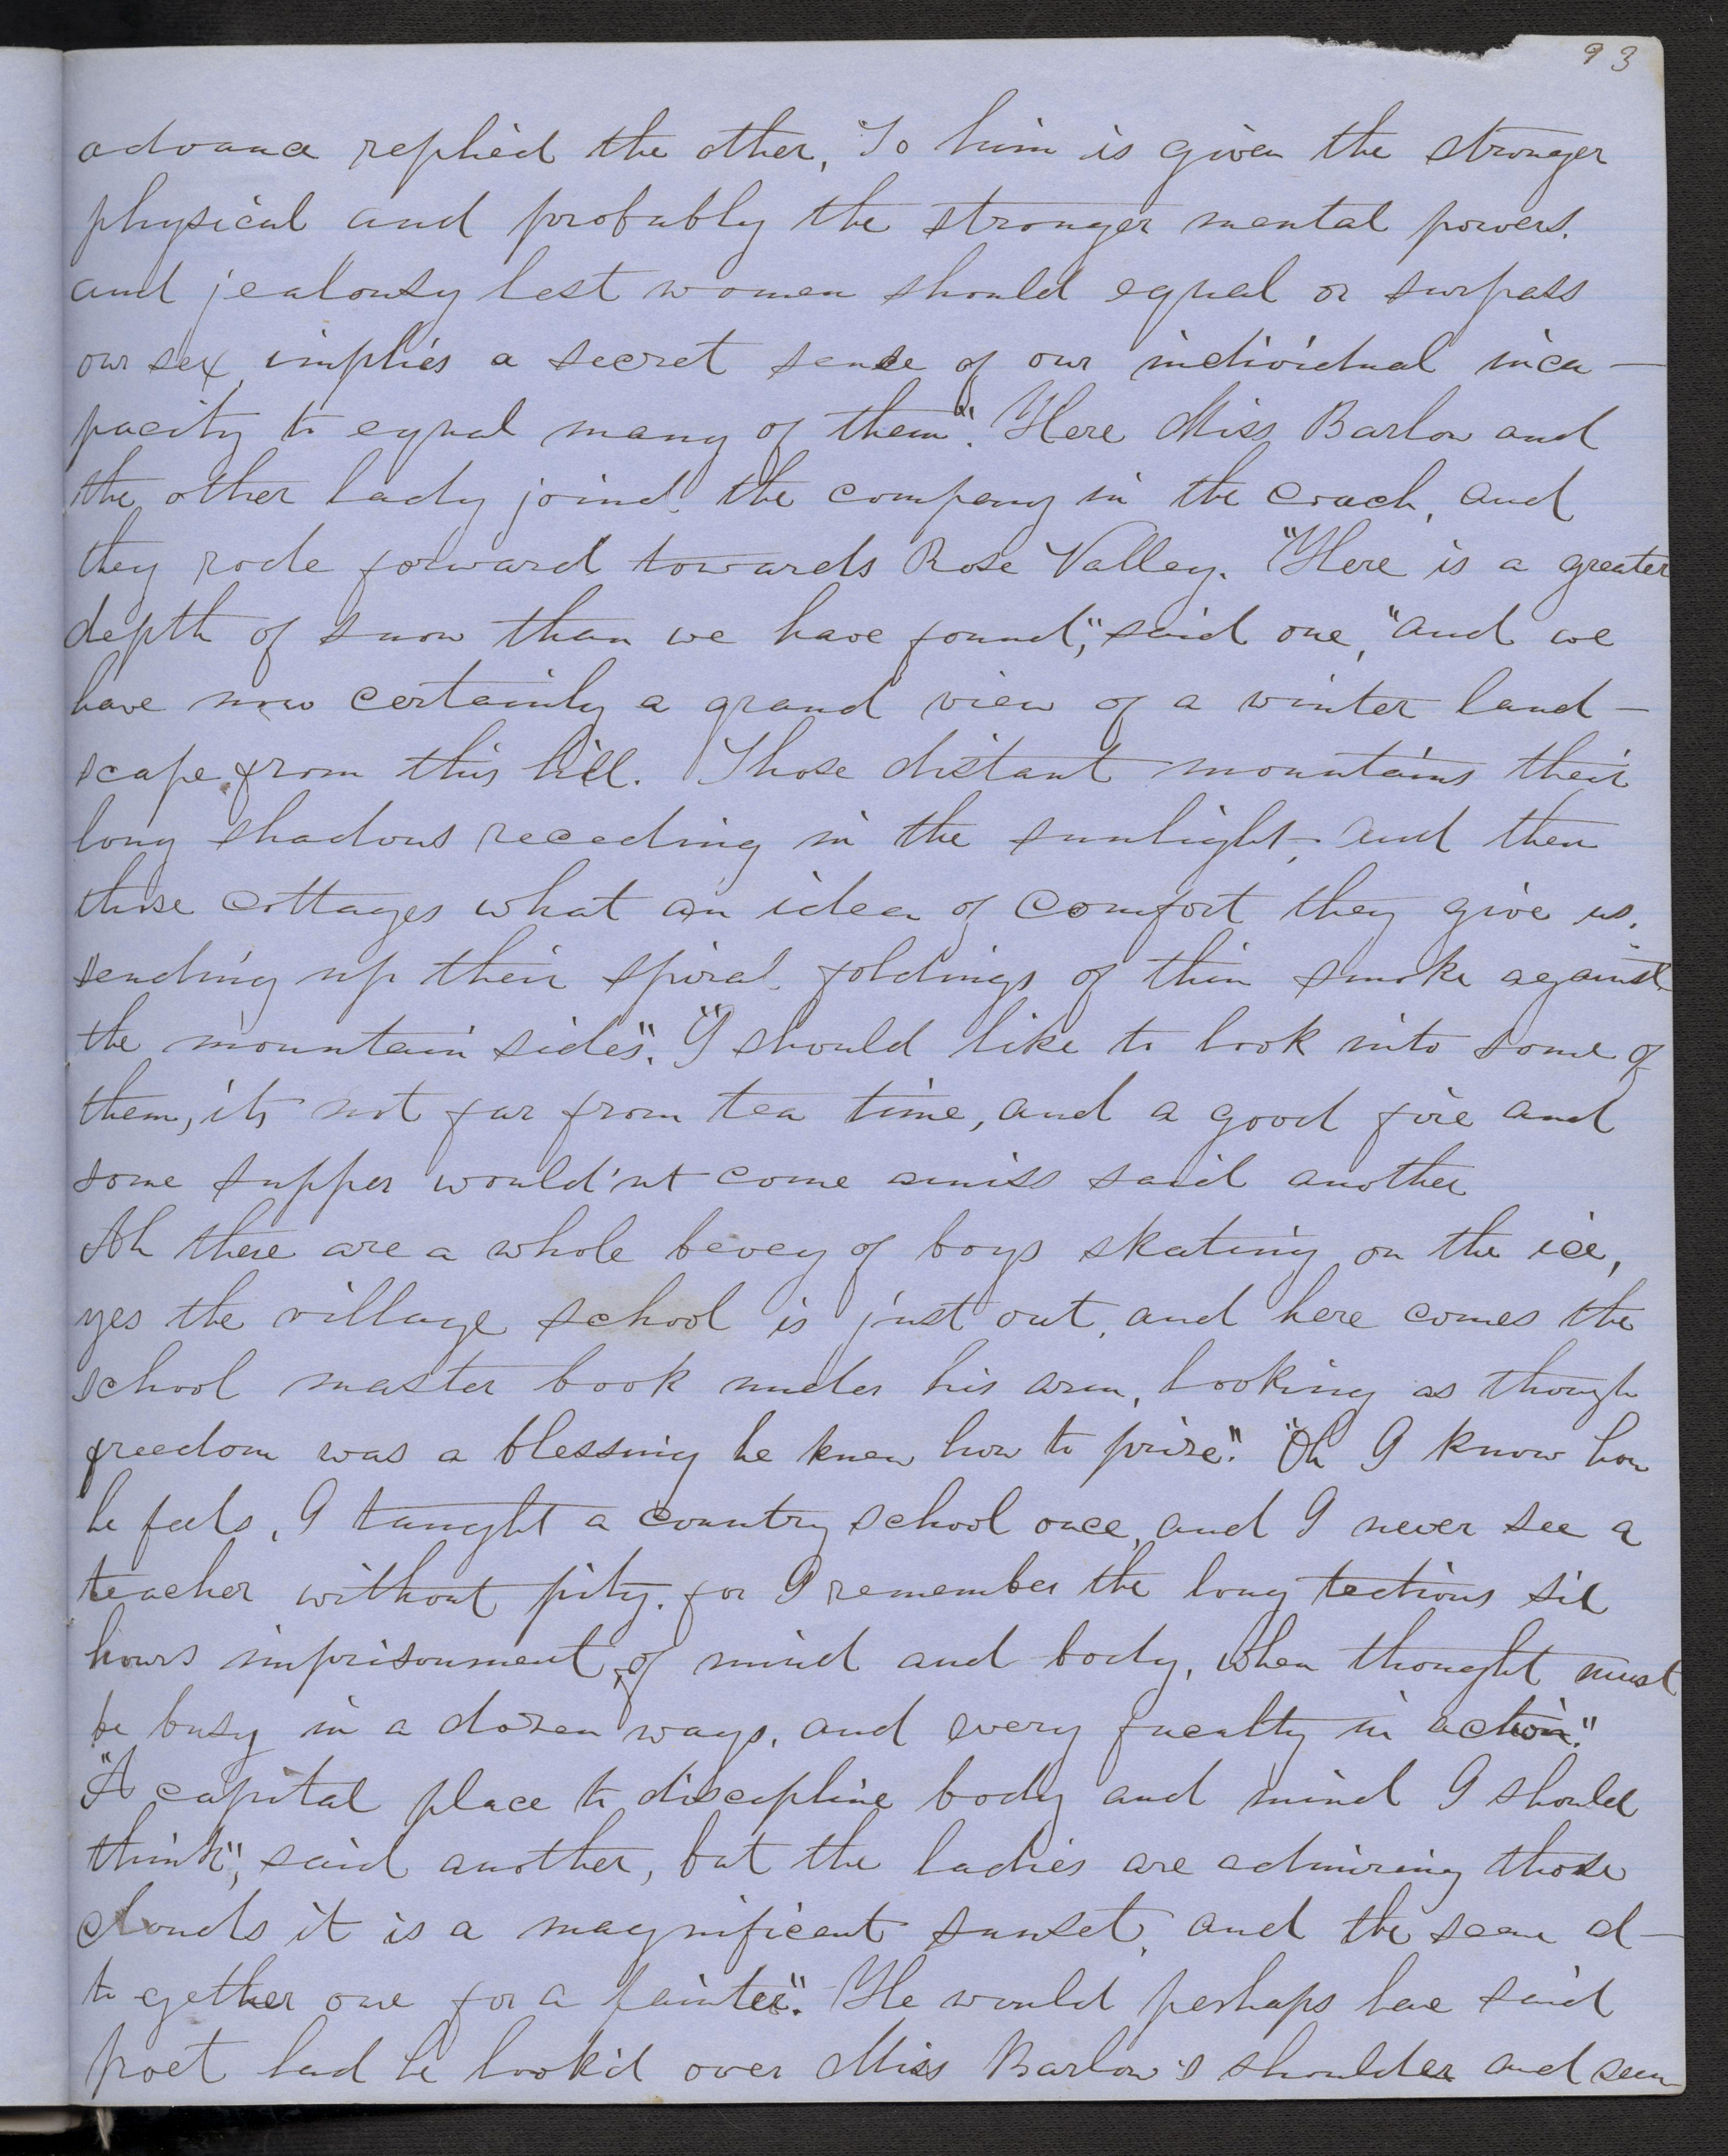 93
advance replied the other, To him is given the stronger
physical and probably the stronger mental powers.
and jealousy lest women should equal or surpass
our sex, implies a secret sense of our individual inca-
pacity to equal many of them". Here Miss Barlow and
the other lady joind the company in the coach, and
they rode forward towards Rose Valley. "Here is a greater
depth of snow than we have found", said one, "and we
have now certainly a grand view of a winter land-
scape from this hill. Those distant mountains their
long shadows receding in the sunlight, and then
those cottages what an idea of comfort they give us,
sending up their spiral foldings of thin smoke against
the mountain sides". "I should like to look into some of
them, its not far from tea time, and a good fire and
some supper would'nt come amiss said another
Ah there are a whole bevey of boys skating on the ice,
yes the village school is just out, and here comes the
school master book under his arm, looking as though
freedom was a blessing he knew how to prize". "Oh I know how
he feels, I taught a country school once, and I never see a
teacher without pity. for I remember the long tectious six
hours imprisonment, of mind and body, when thought must
be busy in a dozen ways, and every faculty in action."
"A capital place to discipline body and mind I should
think", said another, but the ladies are admiring those
clouds it is a magnificent sunset, and the scene al-
together one for a painter". He would perhaps have said
poet had he look'd over Miss Barlow's shoulder and seen